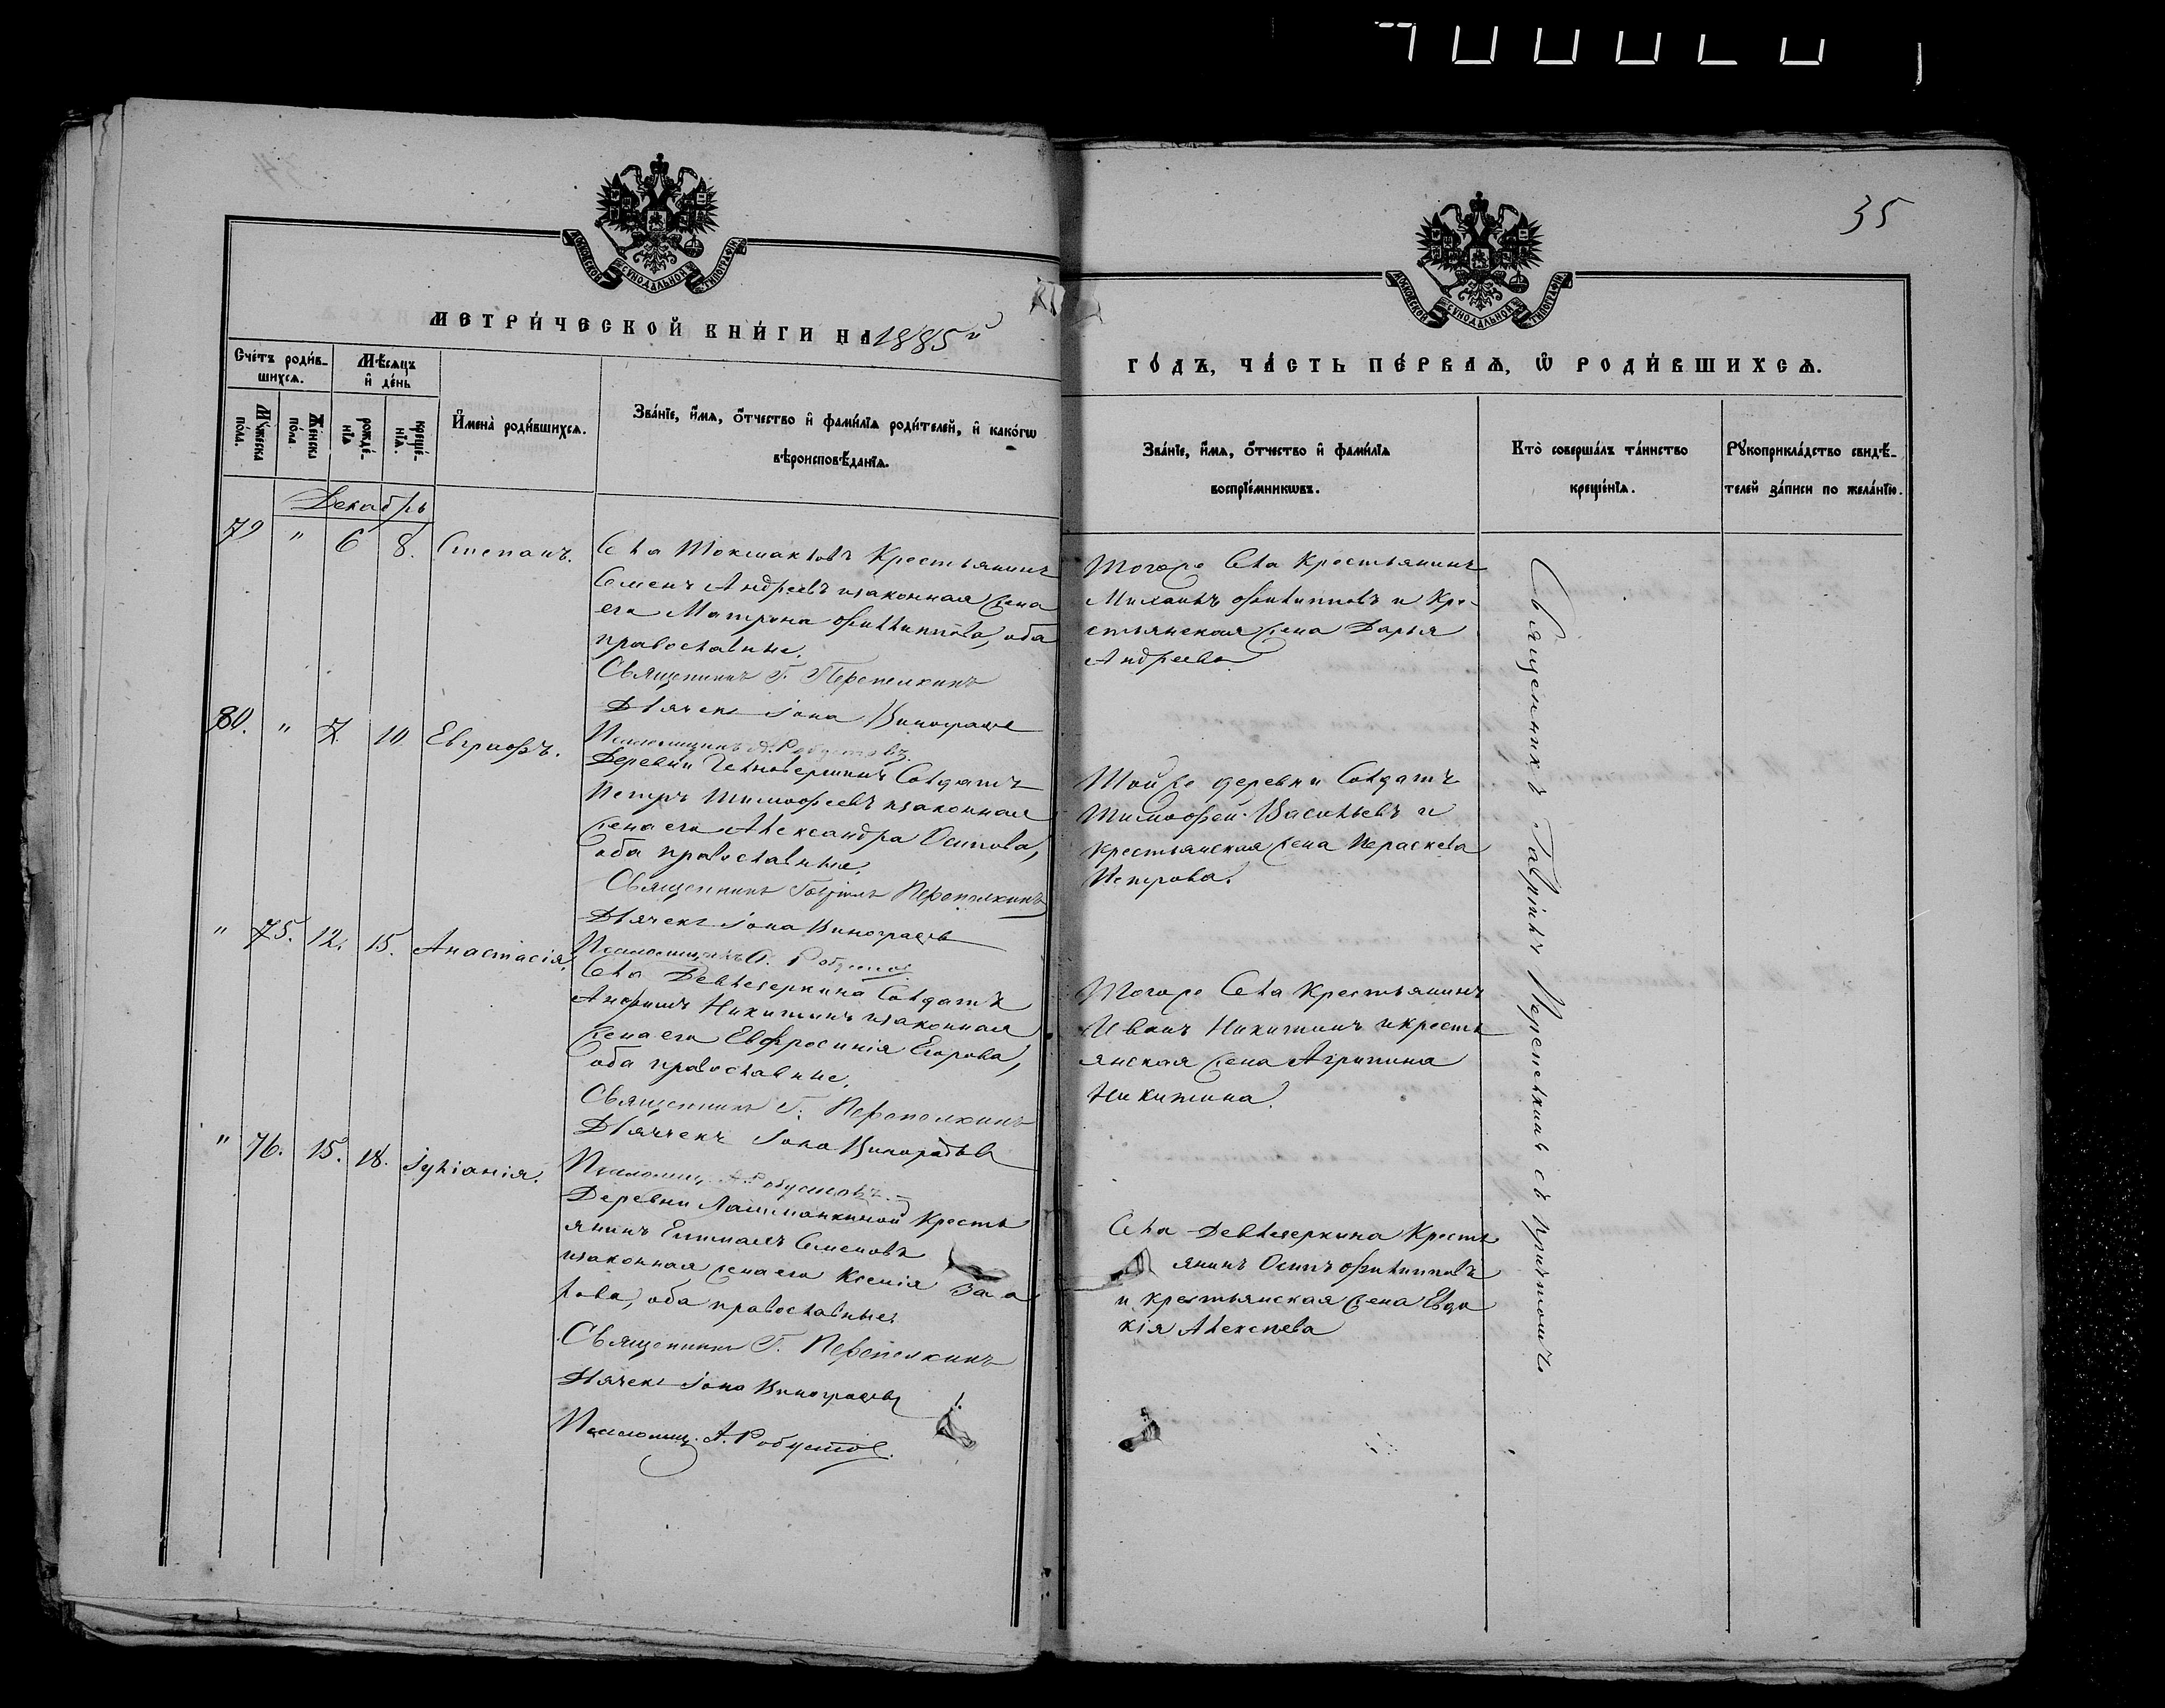 35
МОСКОВСКОЙ СѴНОДАЛЬНОЙ ТИПОГРАФІИ
МОСКОВСКОЙ СѴНОДАЛЬНОЙ ТИПОГРАФІИ
МЕТРИ́ЧЕСКОЙ КНИ́ГИ НА 1885й
ГО́ДЪ, ЧА́СТЬ ПЕ́РВАѦ, Ѽ РОДИ́ВШИХСѦ.
Сче́тъ роди́в-
шихсѧ.
Мѣ́сѧцъ
и҆ де́нь
Мꙋ́жеска
по́ла.
Же́нска
по́ла
рожде́-
нїѧ
креще́-
нїѧ.
И҆мена̀ роди́вшихсѧ.
Зва́нїе, и҆́мѧ, ѻ҆́тчество и҆ фами́лїѧ роди́телей, и҆ како́гѡ
вѣроисповѣ́данїѧ.
Зва́нїе, и҆́мѧ, ѻ҆́тчество и҆ фами́лїѧ
воспрїе́мникѡвъ.
Кто̀ соверша́лъ та́инство
креще́нїѧ.
Рꙋкоприкла́дство свидѣ́-
телей за́писи по жела́нїю.
Декабрь
79 " 6 8. Степанъ.
Села Токмакловъ Крестьянинъ
Семенъ Андреевъ изаконная жена
его Матрона Филиппова, оба
православные.
Священникъ Г. Перепелкинъ
Дьячекъ Іона Виноградовъ
Псаломщикъ А. Робустовъ.
Тогоже Села Крестьянинъ
Михаилъ Филипповъ и Кре-
стьянская жена Дарья
Андреева
80. " 7 10 Евграфъ.
Деревни Челновершинъ Солдатъ
Петръ Тимофеевъ изаконная
жена его Александра Осипова,
оба православные.
Священникъ Гавріилъ Перепелкинъ
Дьячекъ Іона Виноградовъ
Псаломщикъ А. Робустовъ
Тойже деревни Солдатъ
Тимофей Васильевъ и
крестьянская жена Параскева
Петрова.
" 75. 12. 15. Анастасія.
Села Девлезеркина Солдатъ
Анфимъ Никитинъ изаконная
жена его Евфросинія Егорова,
оба православные.
Священникъ Г. Перепелкинъ
Дьячекъ Іона Виноградовъ
Псаломщ. А. Робустовъ.
Тогоже Села Крестьянинъ
Иванъ Никитинъ и кресть
янская жена Агрипина
Никитина.
" 76. 15. 18. Іуліанія.
Деревни Лашманкиной Кресть
янинъ Семеновъ
изаконная жена его Ксенія
оба православные
Священникъ Г. Перепелкинъ
Дьячекъ Іона Виноградовъ
Псаломщ. А. Робустовъ.
Села Девлезеркина Кресть
янинъ Осипъ Филипповъ
и крестьянская жена Евдо
кія Алексеева
Священникъ Гавріилъ Перепелкинъ съ причтомъ